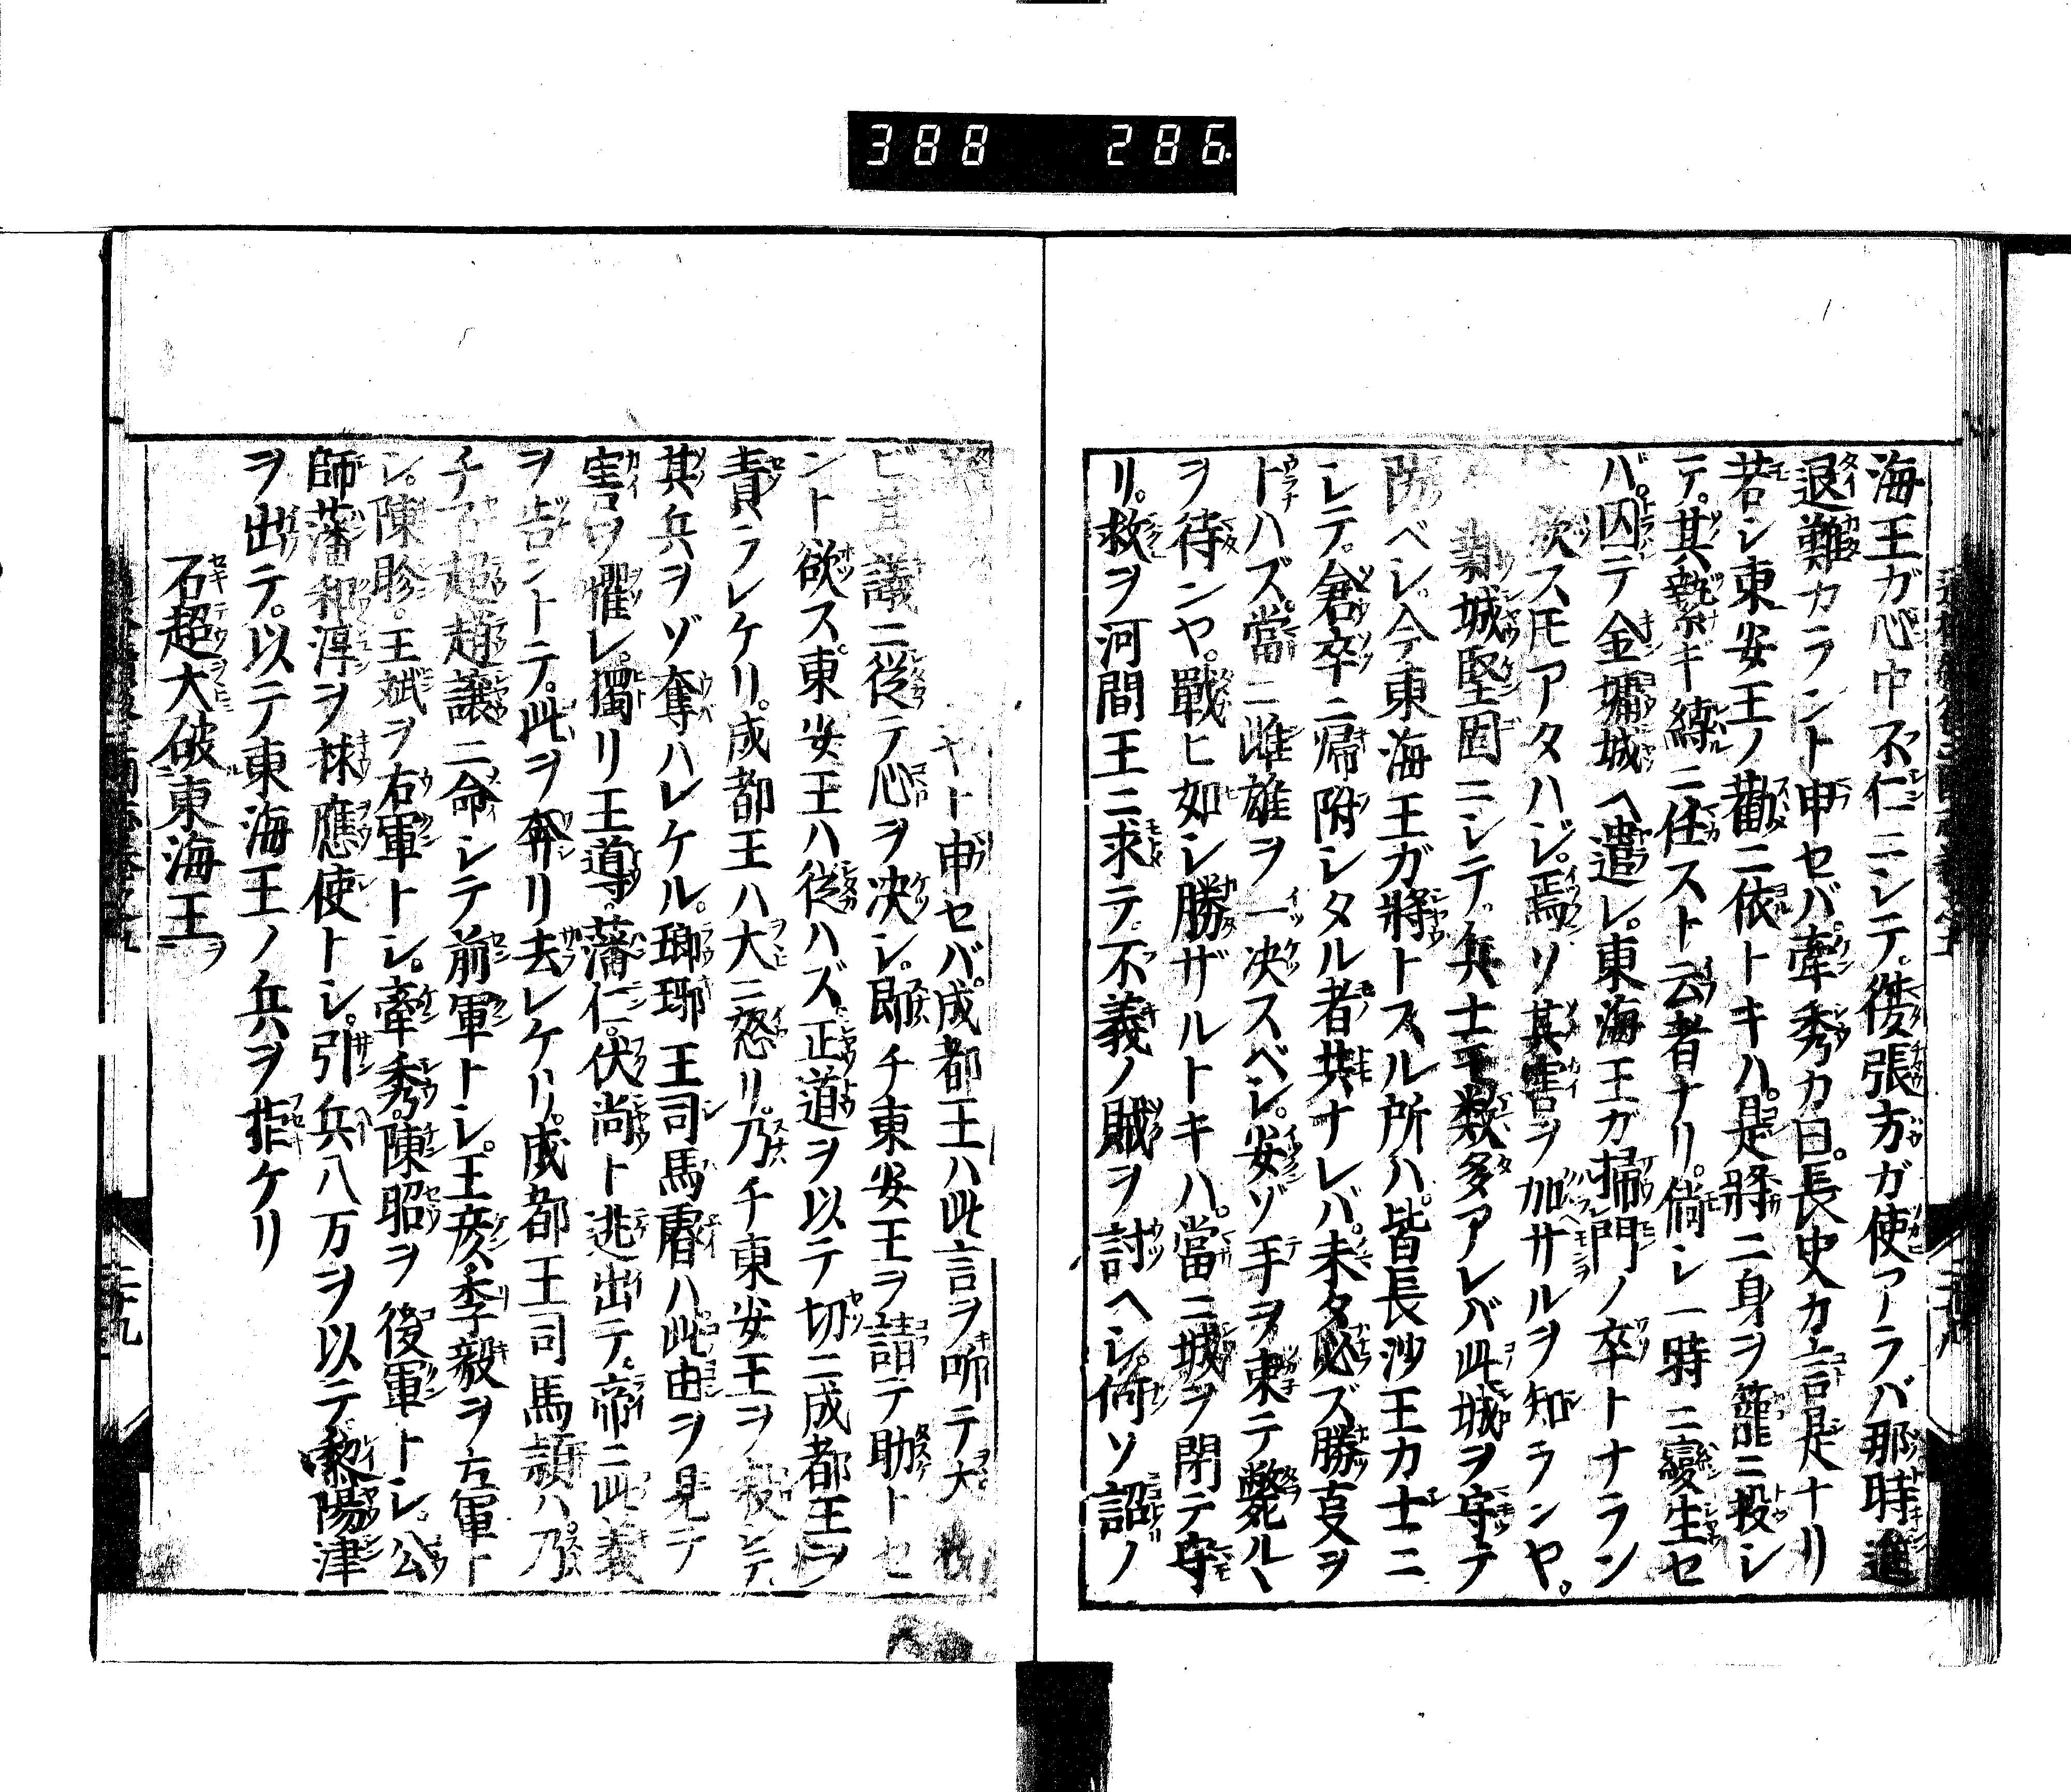 388 286
海王ガ心中不仁ニシテ。復張方ガ使アラバ那時進
退難カラント申セバ。牽秀カ曰。長史カ言是ナリ
若シ東安王ノ勸ニ依トキハ。是將ニ身ヲ籠ニ投シ
テ。其繫ギ縛ニ任スト云者ナリ。倘シ一時ニ變生セ
バ。囚テ金墉城ヘ遣レ。東海王カ掃門ノ卒トナラン
欢スモアタハジ。焉ソ其害ヲ加サルヲ知ランヤ。
城堅固ニシテ。兵士モ数多アレバ此城ヲ守テ
防ベシ。今東海王ガ將トスル所ハ。皆長沙王カ士ニ
シテ。倉卒ニ帰附シタル者共ナレバ。未タ必ズ勝支ヲ
トハズ。當ニ雌雄ヲ一决スベシ。安ゾ手ヲ束テ斃ルヽ
ヲ待ンヤ。戰ヒ如シ勝ザルトキハ。當ニ城ヲ閉テ守
リ。救ヲ河間王ニ求テ。不義ノ賊ヲ討ヘシ。何ソ詔ノ
ヤト申セバ。成都王ハ此言ヲ听テ大
ビ其議ニ從テ心ヲ决シ。即チ東安王ヲ請テ助トセ
ント欲ス。東安王ハ從ハズ正道ヲ以テ切ニ成都王ヲ
責ラレケリ。成都王ハ大ニ怒リ。乃チ東安王ヲ殺シテ
其兵ヲゾ奪ハレケル。瑯琊王司馬睿ハ此由ヲ見テ
害ヲ懼レ。獨リ王導。藩仁。伏尚ト逃出テ。帝ニ此義
ヲ告ントテ。此ヲ奔リ去レケリ。成都王司馬穎ハ乃
チ石超趙讓ニ命シテ前軍トシ。王彦。李毅ヲ左軍ト
シ。陳眕。王斌ヲ右軍トシ。牽秀。陳昭ヲ後軍トシ。公
師藩和淳ヲ救應使トシ。引兵八万ヲ以テ黎陽津
ヲ出テ。以テ東海王ノ兵ヲ拒ケリ
石超大破東海王ヲ